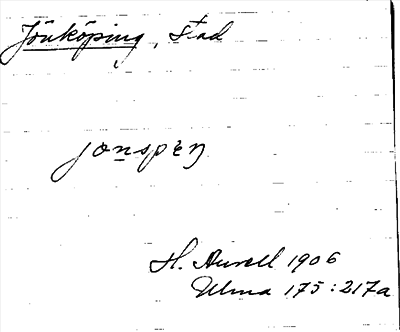 Jönköping, stad
jonspeŋ
H. Aurell 1906
Ulma 175:217a